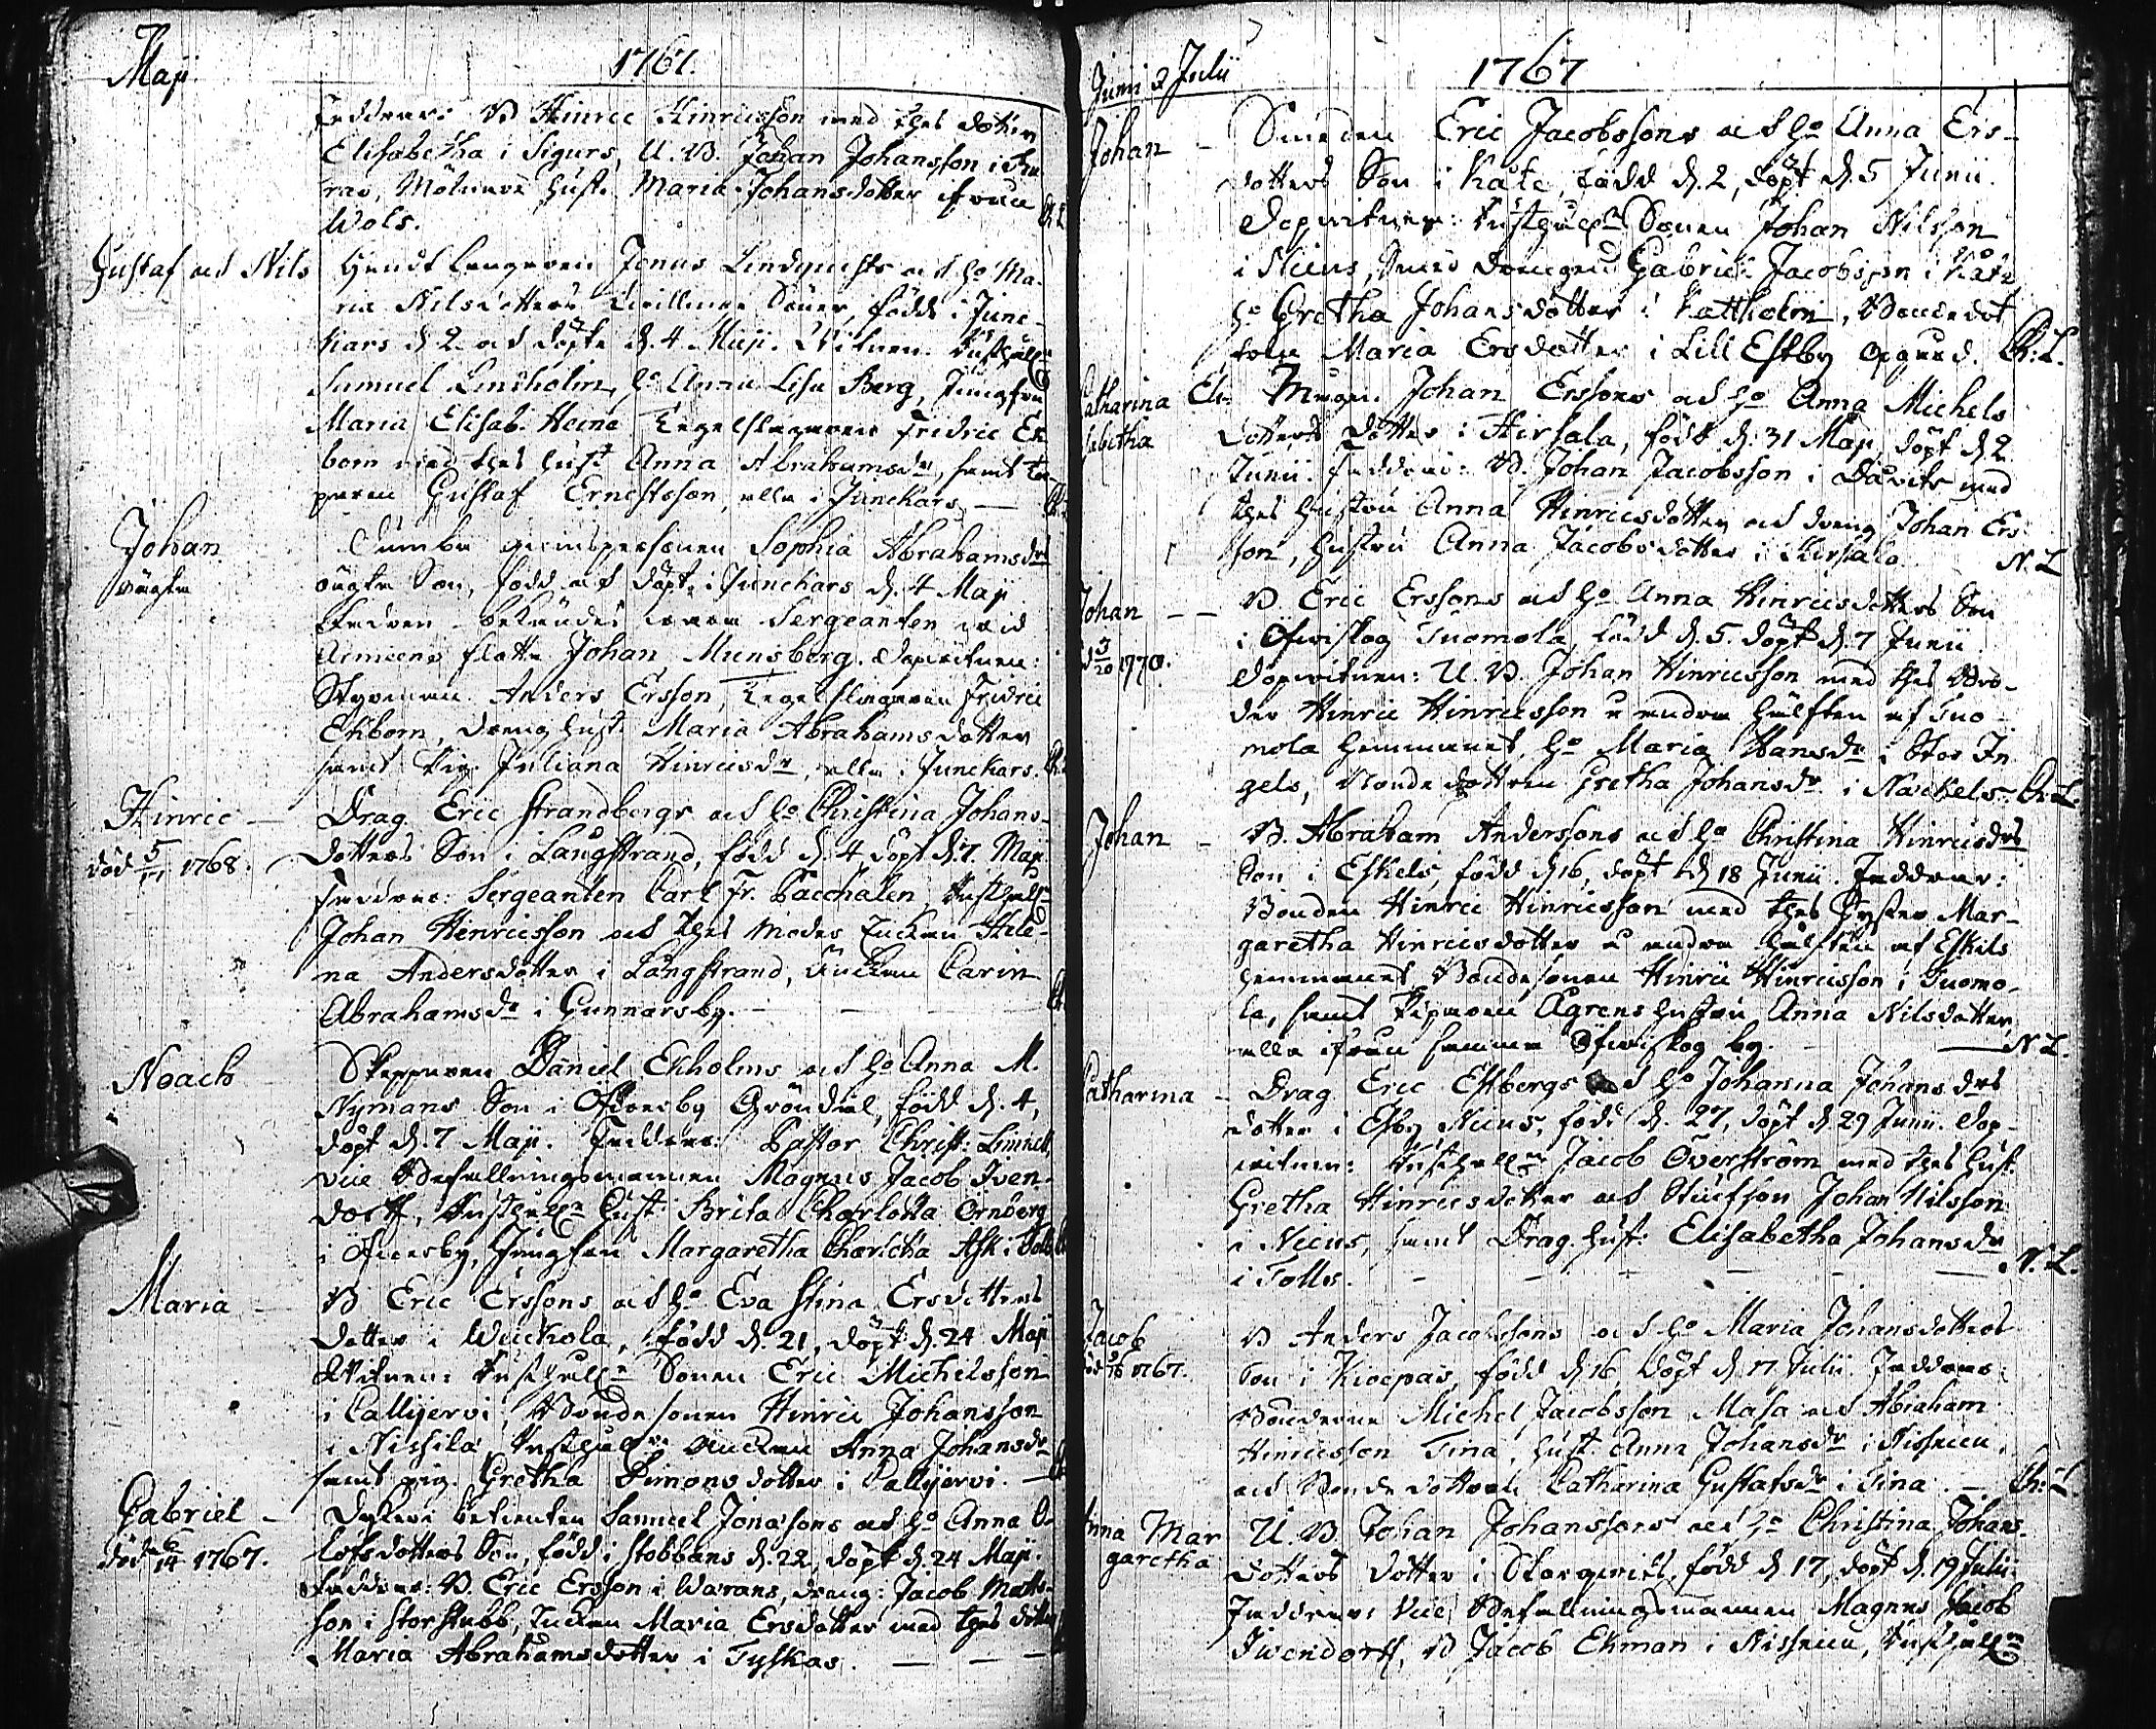 Maji 1767.
Faddrar: B Hinric Hinricsson med thes dotter
Elisabetha i Sigurs, U. B. Johan Johansson i
Mölnare hust. Maria Johansdotter ifrån
Wols.
Gustaf och Nils
Jonas Lindquists och ho Ma-
ria Nilsdotters Tvillingar Söner, födde i June-
kars d. 2 och döpte d. 4 Maji. Vitnen:
Samuel Lindholm, ho Anna Lisa Berg, Jungfru
Maria Elisab. Heine Tegelslagaren Fridric Ek
born med thes hust Anna Abrahamsdr, samt
Gustaf Ernestsson, alla i Junekars
Johan
oägta
Sophia Abrahamsdrs
oägta Son, född och döpt i Junekars d. 4 Maji
Fadren bekändes vara Sergeanten vid
Armeens flotta Johan Munsberg. Dopvitnen:
Styrman Anders Ersson, Tegelslagaren Fridric
Ekborn, dreng hust. Maria Abrahamsdotter
samt Pig. Juliana Hinricsdr, alla i Junekars.
Hinric
död 5/11 1768.
Drag. Eric Strandbergs och ho Christina Johans-
dotters Son i Långstrand, född d. 4, döpt d. 7. Maji
Faddrar: Sergeanten Carl Fr. Pacchalen,
Johan Henricsson och thes moder Enkan Hele-
na Andersdotter i Långstrand, Enkan Carin
Abrahamsdr i Gunnarsby.
Noach
Skepparen Daniel Ekholms och ho Anna M.
Nymans Son i Öfversby Gröndal, född d. 4,
döpt d. 7 Maji. Faddrar: Pastor Christ: Limnell,
vice Befallningsmannen Magnus Jacob Iven-
dorff, hust: Brita Charlotta Örnberg
i Öfversby, Jungfru Margaretha Charlotta Ask i
Maria
B Eric Erssons och ho Eva Stina Ersdotters
dotter i Wuckola, född d. 21, döpt d. 24 Maji
Vitnen: Sonen Eric Michelsson
i Callijervi, Bondesonen Hinric Johansson
i Nissila, Enkan Anna Johansdr
samt pig. Gretha Simonsdotter i Callijervi.
Gabriel
död 6/14 1767.
betienten Samuel Jonassons och ho Anna O-
lofsdotters Son, född i Stobbans d. 22, döpt d. 24 Maji.
Faddrar: B. Eric Ersson i Warans, dreng: Jacob Matts-
son i Storstubb, Enkan Maria Ersdotter med thes dotter
Maria Abrahamsdotter i Tyskas.
Junii & Julii 1767
Johan
Smeden Eric Jacobssons och ho Anna Ers-
dotters Son i Kåte, född d. 2, döpt d. 5 Junii.
Dopvitnen: Sonen Johan Nilsson
i Nicus, Smed drengen Gabriel Jacobsson i Kåte
ho Gretha Johansdotter i Kattholm, Bondedot
tren Maria Ersdotter i Lill Estby Ch: L.
Catharina Eli-
sabetha
Johan Erssons och ho Anna Michels
dotters dotter i Hirsala, född d. 31 Maji, döpt d 2
Junii. Faddrar: B. Johan Jacobsson i Davits med
thes hustru Anna Hinricsdotter och dreng Johan Ers
son, hustru Anna Jacobsdotter i Hirsala. N. L
Johan
d 3/20 1770.
B. Eric Erssons och ho Anna Hinricsdotters Son
i Öfwiskog Tuomola, född d. 5. döpt d. 7 Junii
Dopvitnen: U. B. Johan Hinricsson med thes Bro-
der Hinric Hinricsson å andra hälften af Tuo-
mola hemmanet, ho Maria Hansdr i Stor In
gels, Bonde dottren Gretha Johansdr i Nackels. Ch. L.
Johan
B. Abraham Anderssons och ho Christina Hinricsdrs
Son i Eskels, född d 16, döpt d 18 Junii. Faddrar:
Bonden Hinric Hinricsson med thes Syster Mar-
garetha Hinricsdotter å andra hälften af Eskils
hemmanet Bondesonen Hinric Hinricsson i Tuomo-
la, samt Ågrens hustru Anna Nilsdotter,
alla ifrån samma Öfwiskog by. N L.
Catharina
Drag. Eric Estbergs och ho Johanna Johansdrs
dotter i Estby Nicus, född d. 27, döpt d 29 Junii. Dop-
vitnen: Jacob Överström med thes hust.
Gretha Hinricsdotter och Johan Nilsson
i Nicus, samt Drag. hust: Elisabetha Johansdr
i Tolls. N. L.
Jacob
1767.
B Anders Jacobssons och ho Maria Johansdotters
Son i Kioepas, född d 16 döpt d 17 Julii Faddrar:
Bönderne Michel Jacobsson Masa och Abraham
Hinricsson Tina, hust. Anna Johansdr i
och Bonde dottren Catharina Gustafsdr i Tina. Ch: L.
Anna Mar
garetha
U. B Johan Johanssons och ho Christina Johans-
dotters dotter i född d 17, döpt d. 19 Julii
Faddrar: Vice Befallningsmannen Magnus Jacob
Iwendorff, B Jacob Ekman i